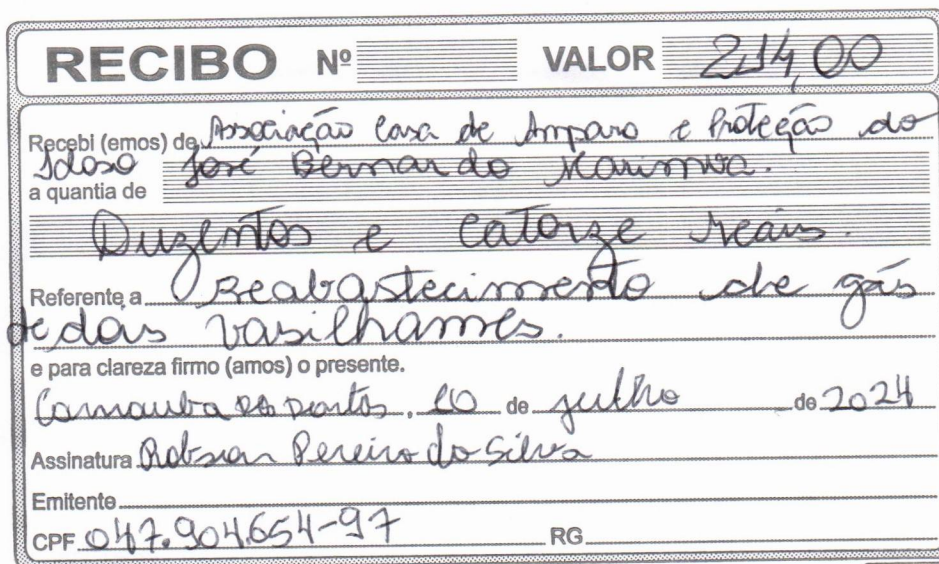 RECIBO Nº VALOR 214,00
Recebi (emos) de Associação Casa de Amparo e Proteção do
Idoso José Bernardo
a quantia de
Duzentos e catorze reais.
Referente a Reabastecimento de gás
de dois vasilhames.
e para clareza firmo (amos) o presente.
Carnauba dos Dantas, 10 de julho de 2024
Assinatura Robson Pereira da Silva
Emitente
CPF 047.904.654-97 RG